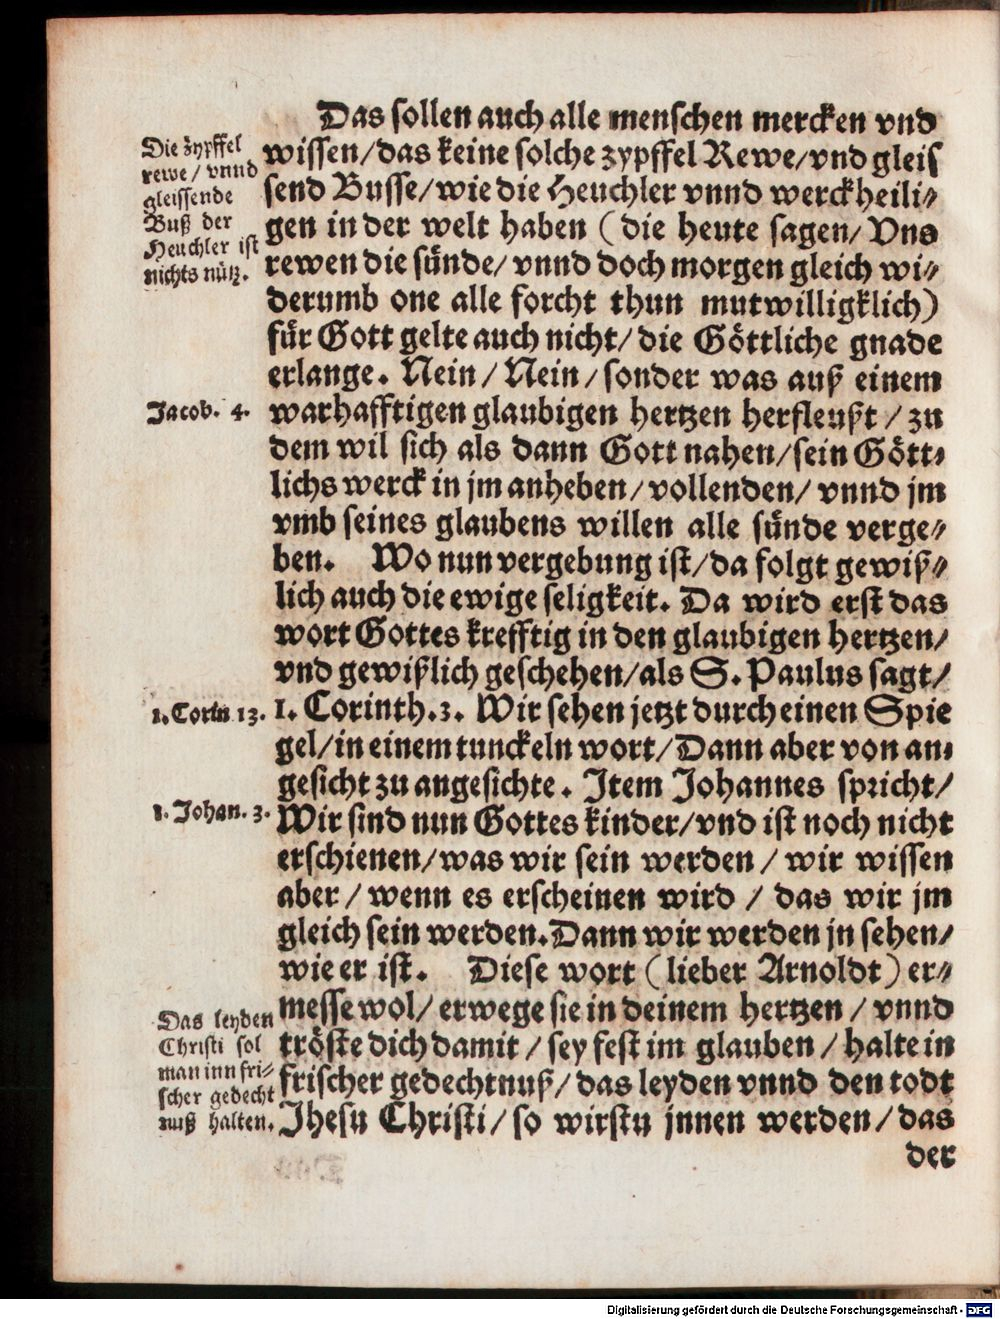 Das sollen auch alle menschen mercken vnd
wissen/das keine solche zypffel Rewe/vnd gleis
send Busse/wie die Heuchler vnnd werckheili-
gen in der welt haben (die heute sagen/ Vns
rewen die sünde/ vnnd doch morgen gleich wi-
derumb one alle forcht thun mutwilligklich)
für Gott gelte auch nicht/ die Göttliche gnade
erlange. Nein/ Nein/ sonder was auß einem
warhafftigen glaubigen hertzen herfleußt/ zu
dem wil sich als dann Gott nahen/sein Gött-
lichs werck in jm anheben/ vollenden/ vnnd jm
vmb seines glaubens willen alle sünde verge-
ben. Wo nun vergebung ist/da folgt gewiß-
lich auch die ewige seligkeit. Da wird erst das
wort Gottes krefftig in den glaubigen hertzen/
vnd gewißlich geschehen/als S. Paulus sagt/
1. Corinth.3. Wir sehen jetzt durch einen Spie
gel/in einem tunckeln wort/Dann aber von an-
gesicht zu angesichte. Item Johannes spricht/
Wir sind nun Gottes kinder/vnd ist noch nicht
erschienen/was wir sein werden/ wir wissen
aber/ wenn es erscheinen wird/ das wir jm
gleich sein werden. Dann wir werden jn sehen/
wie er ist. Diese wort (lieber Arnoldt) er-
messe wol/ erwege sie in deinem hertzen/ vnnd
tröste dich damit/ sey fest im glauben/ halte in
frischer gedechtnuß/ das leyden vnnd den todt
Jhesu Christi/ so wirstu jnnen werden/ das
der
Die zypffel
rewe/ vnnd
gleissende
Buß der
Heuchler ist
nichts nütz.
Jacob. 4.
1. Corin 13.
1. Johan. 3.
Das leyden
Christi sol
man inn fri-
scher gedecht
nuß halten.
Digitalisierung gefördert durch die Deutsche Forschungsgemeinschaft - DFG